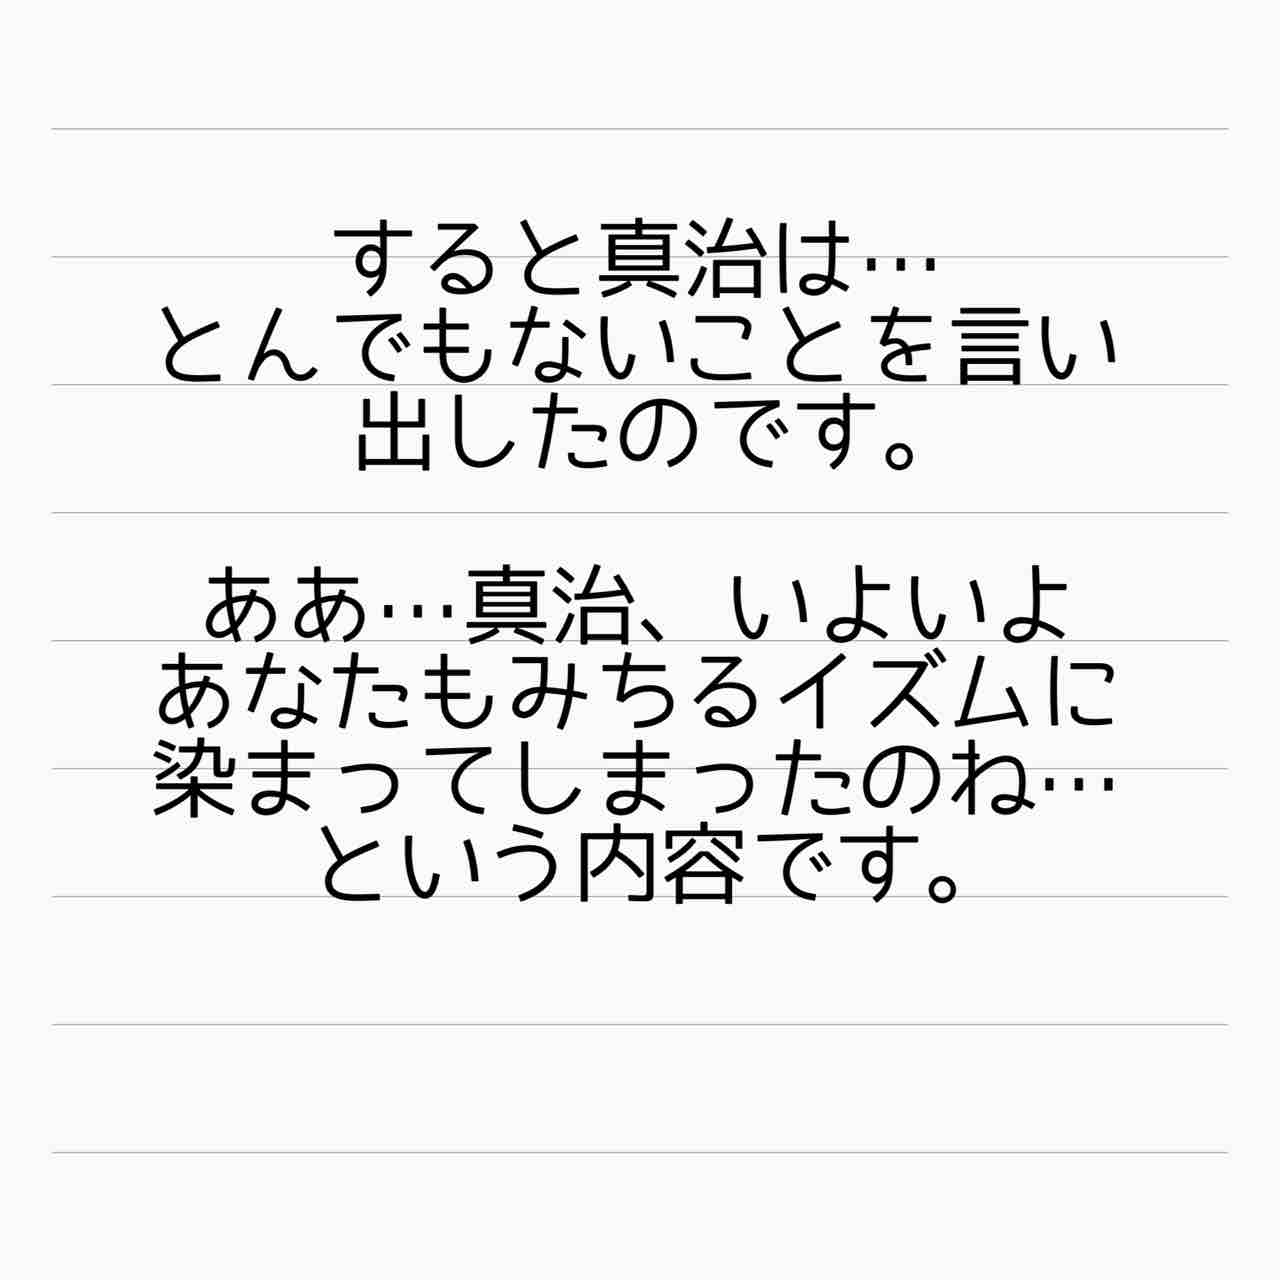 すると真治は…
とんでもないことを言い
出したのです。
ああ…真治、いよいよ
あなたもみちるイズムに
染まってしまったのね…
という内容です。